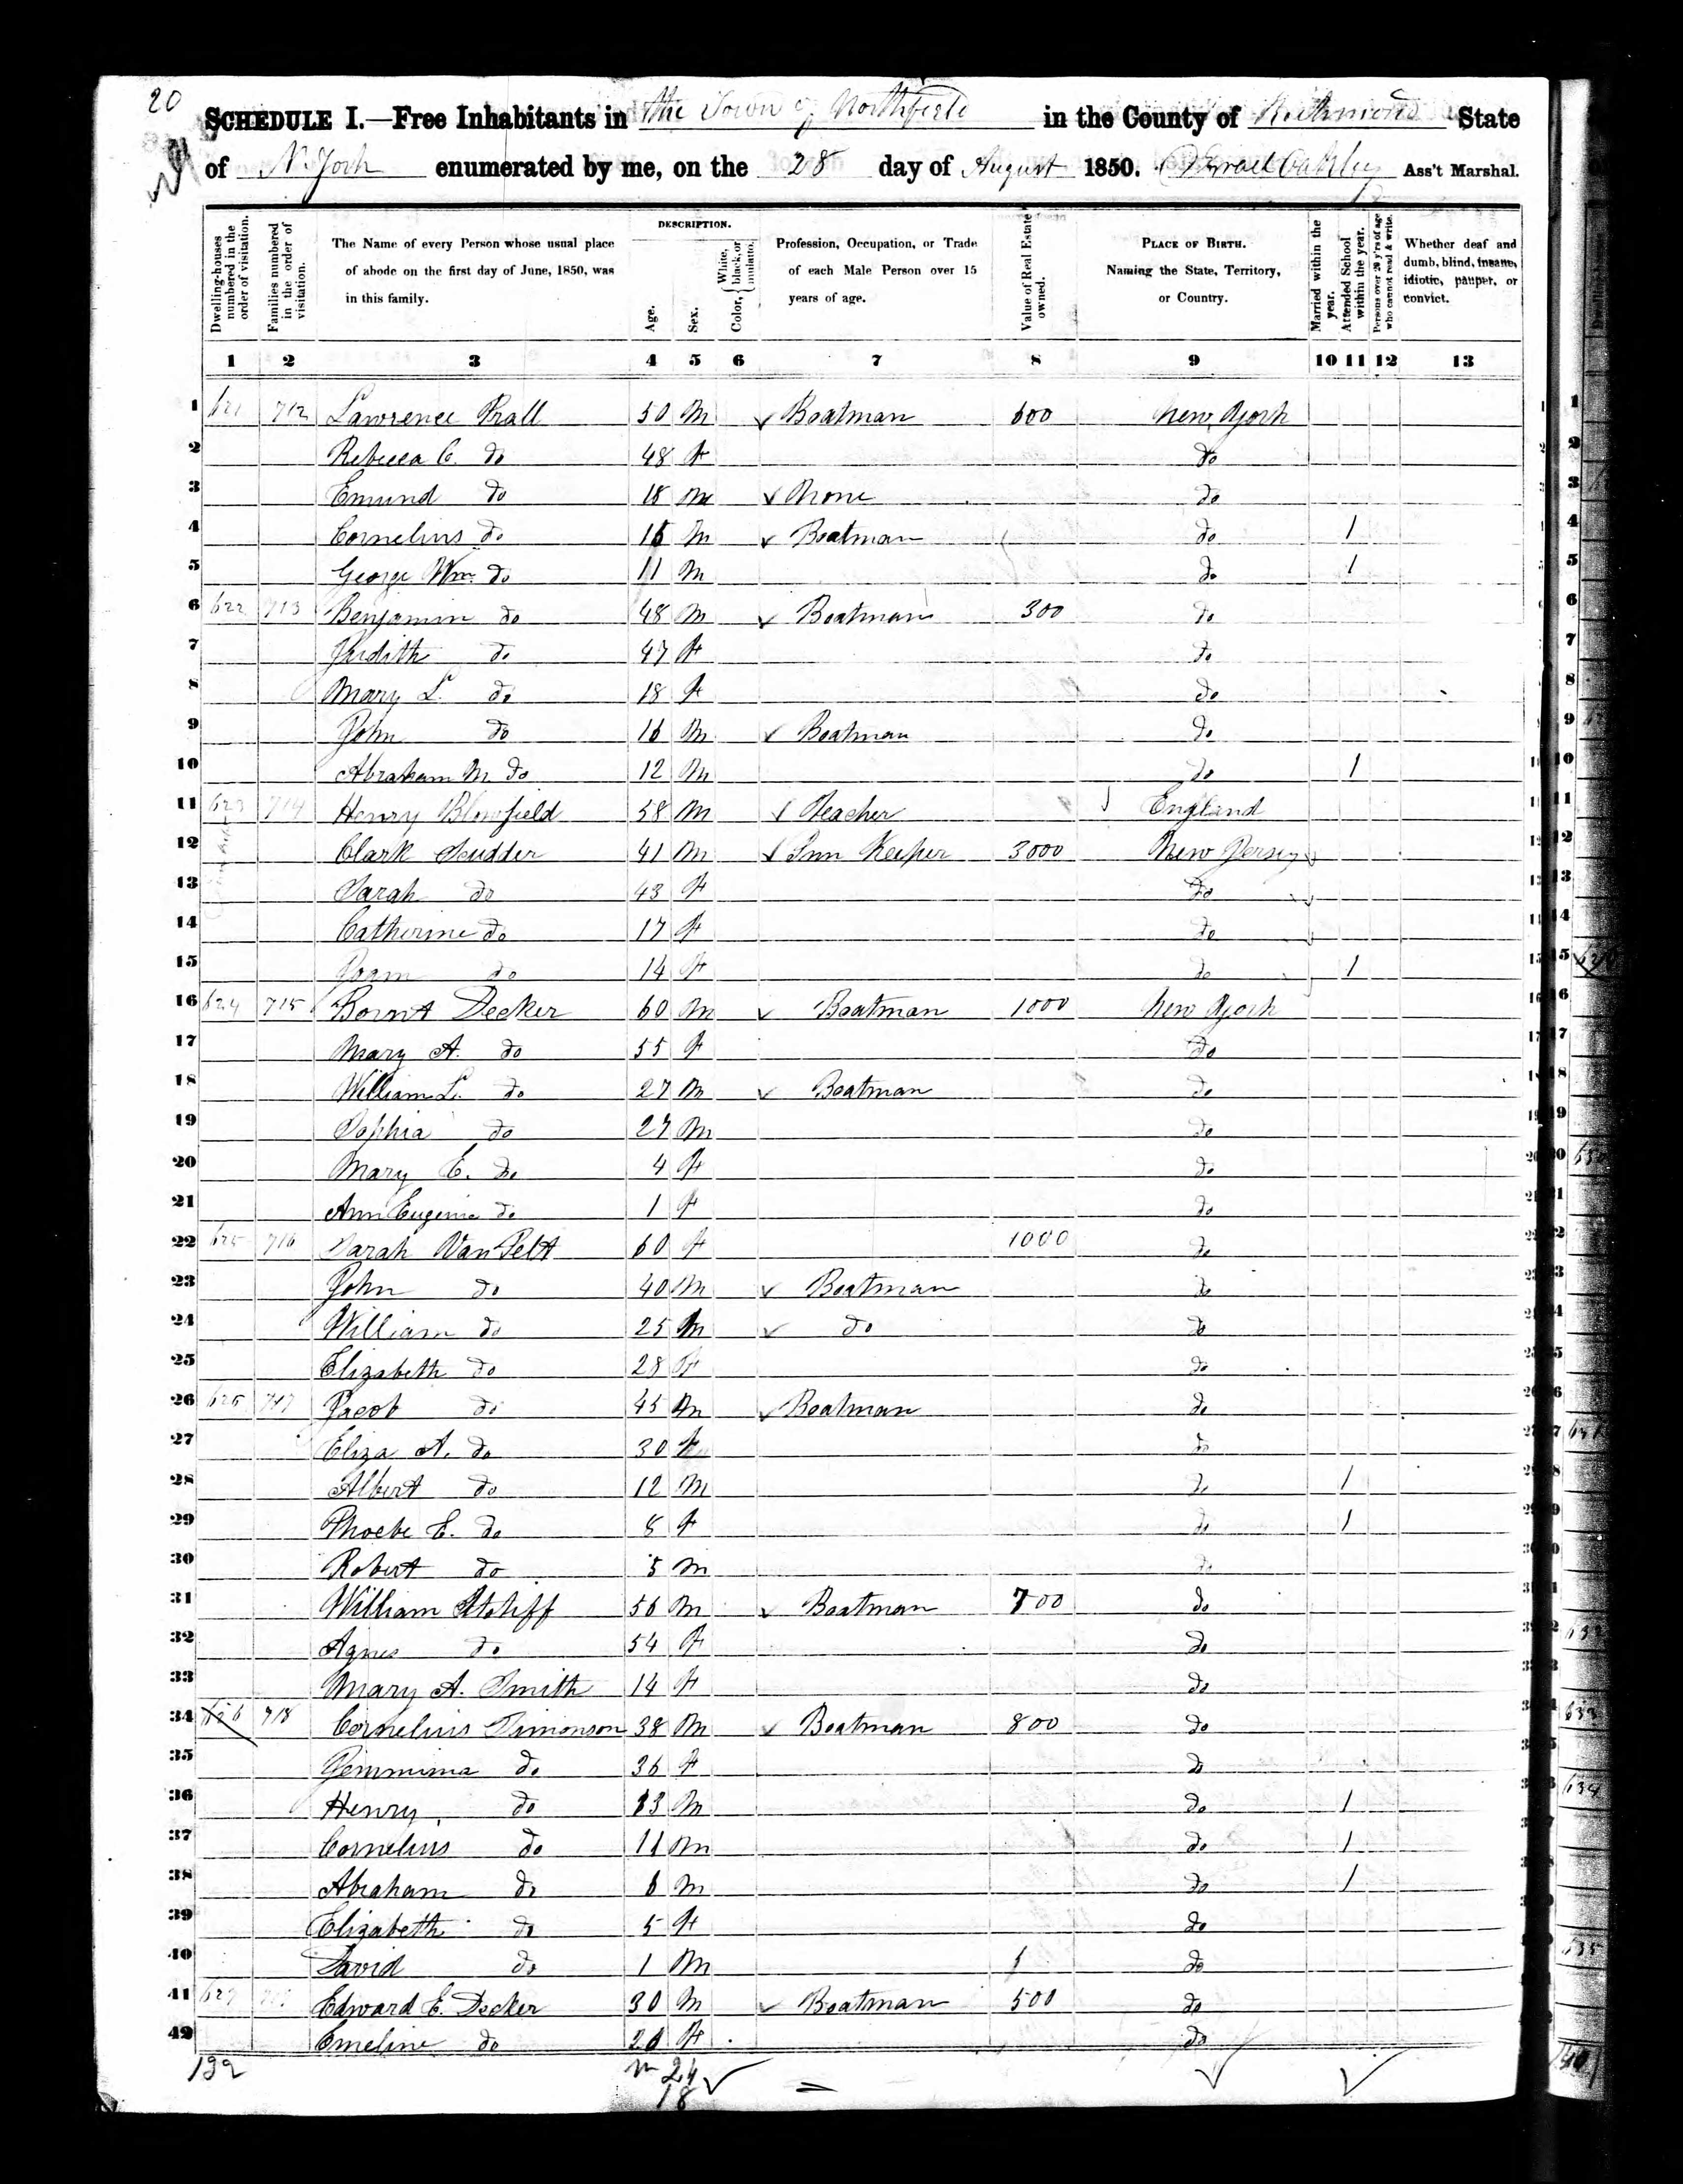 20
SCHEDULE I.—Free Inhabitants in the Town of Northfield in the County of Richmond State
of N. York enumerated by me, on the 28 day of August 1850. Israel Oakley Ass't Marshal.
Dwelling-houses numbered in the order of visitation.
Families numbered in the order of visitation.
The Name of every Person whose usual place of abode on the first day of June, 1850, was in this family.
DESCRIPTION.
Age.
Sex.
Color, White, black, or mulatto.
Profession, Occupation, or Trade of each Male Person over 15 years of age.
Value of Real Estate owned.
PLACE OF BIRTH. Naming the State, Territory, or Country.
Married within the year.
Attended School within the year.
Persons over 20 y'rs of age who cannot read & write.
Whether deaf and dumb, blind, insane, idiotic, pauper, or convict.
1 2 3 4 5 6 7 8 9 10 11 12 13
1 621 712 Lawrence Prall 50 M Boatman 600 New York
2 Rebecca C. do 48 F do
3 Emund do 18 M None do
4 Cornelius do 16 M Boatman do 1
5 George Wm. do 11 M do 1
6 622 713 Benjamin do 48 M Boatman 300 do
7 Judith do 47 F do
8 Mary L. do 18 F do
9 John do 16 M Boatman do
10 Abraham M do 12 M do 1
11 623 714 Henry Blomfield 58 M Teacher England
12 Clark Scudder 41 M Inn Keeper 3000 New Jersey
13 Sarah do 43 F do
14 Catherine do 17 F do
15 do 14 F do 1
16 624 715 Bornt Decker 60 M Boatman 1000 New York
17 Mary A. do 55 F do
18 William L. do 27 M Boatman do
19 Sophia do 27 M do
20 Mary C. do 4 F do
21 Ann Eugenia do 1 F do
22 625 716 Sarah Van Pelt 60 F 1000 do
23 John do 40 M Boatman do
24 William do 25 M do do
25 Elizabeth do 28 F do
26 626 717 Jacob do 45 M Boatman do
27 Eliza A. do 30 F do
28 Albert do 12 M do 1
29 Phoebe E. do 8 F do 1
30 Robert do 5 M do
31 William 56 M Boatman 700 do
32 Agnes do 54 F do
33 Mary A. Smith 14 F do
34 626 718 Cornelius Simonson 38 M Boatman 800 do
35 Jemmima do 36 F do
36 Henry do 13 M do 1
37 Cornelius do 11 M do 1
38 Abraham do 6 M do 1
39 Elizabeth do 5 F do
40 David do 1 M do
41 627 Edward E. Decker 30 M Boatman 500 do
42 Emeline do 26 F do
m 24
18